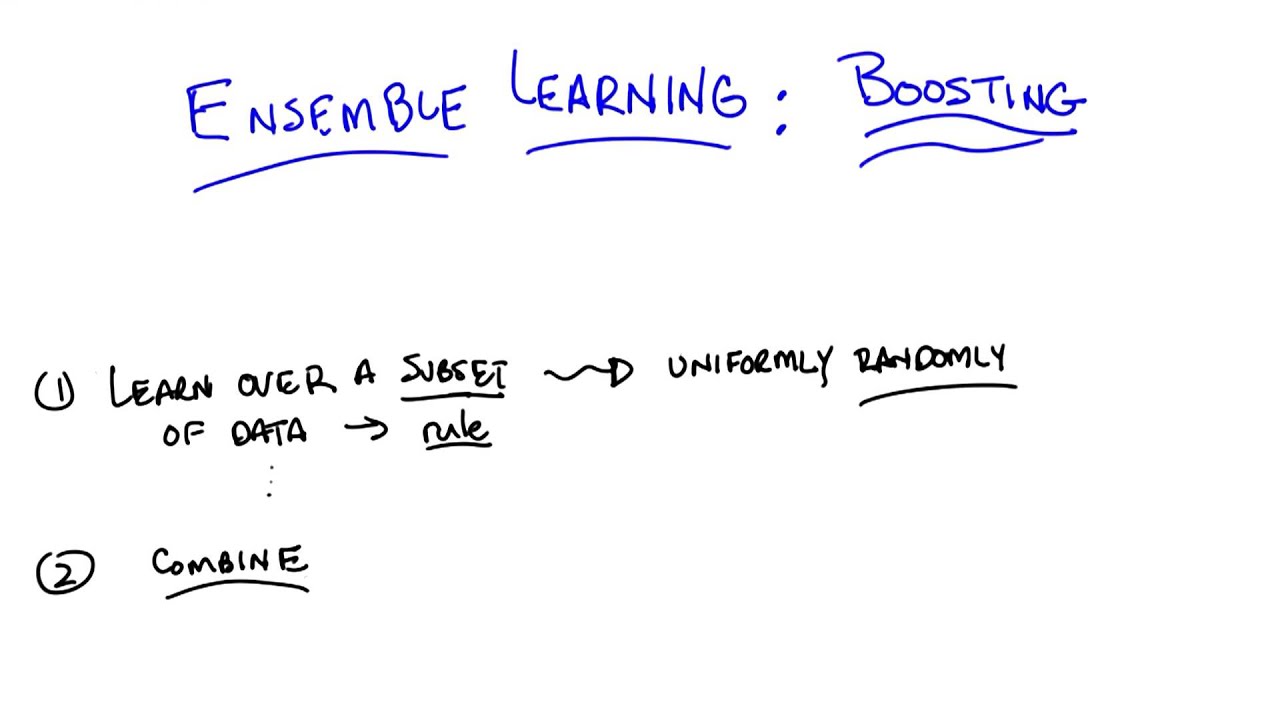 ENSEMBLE LEARNING: BOOSTING
① LEARN OVER A SUBSET → UNIFORMLY RANDOMLY
OF DATA → rule
⋮
② COMBINE